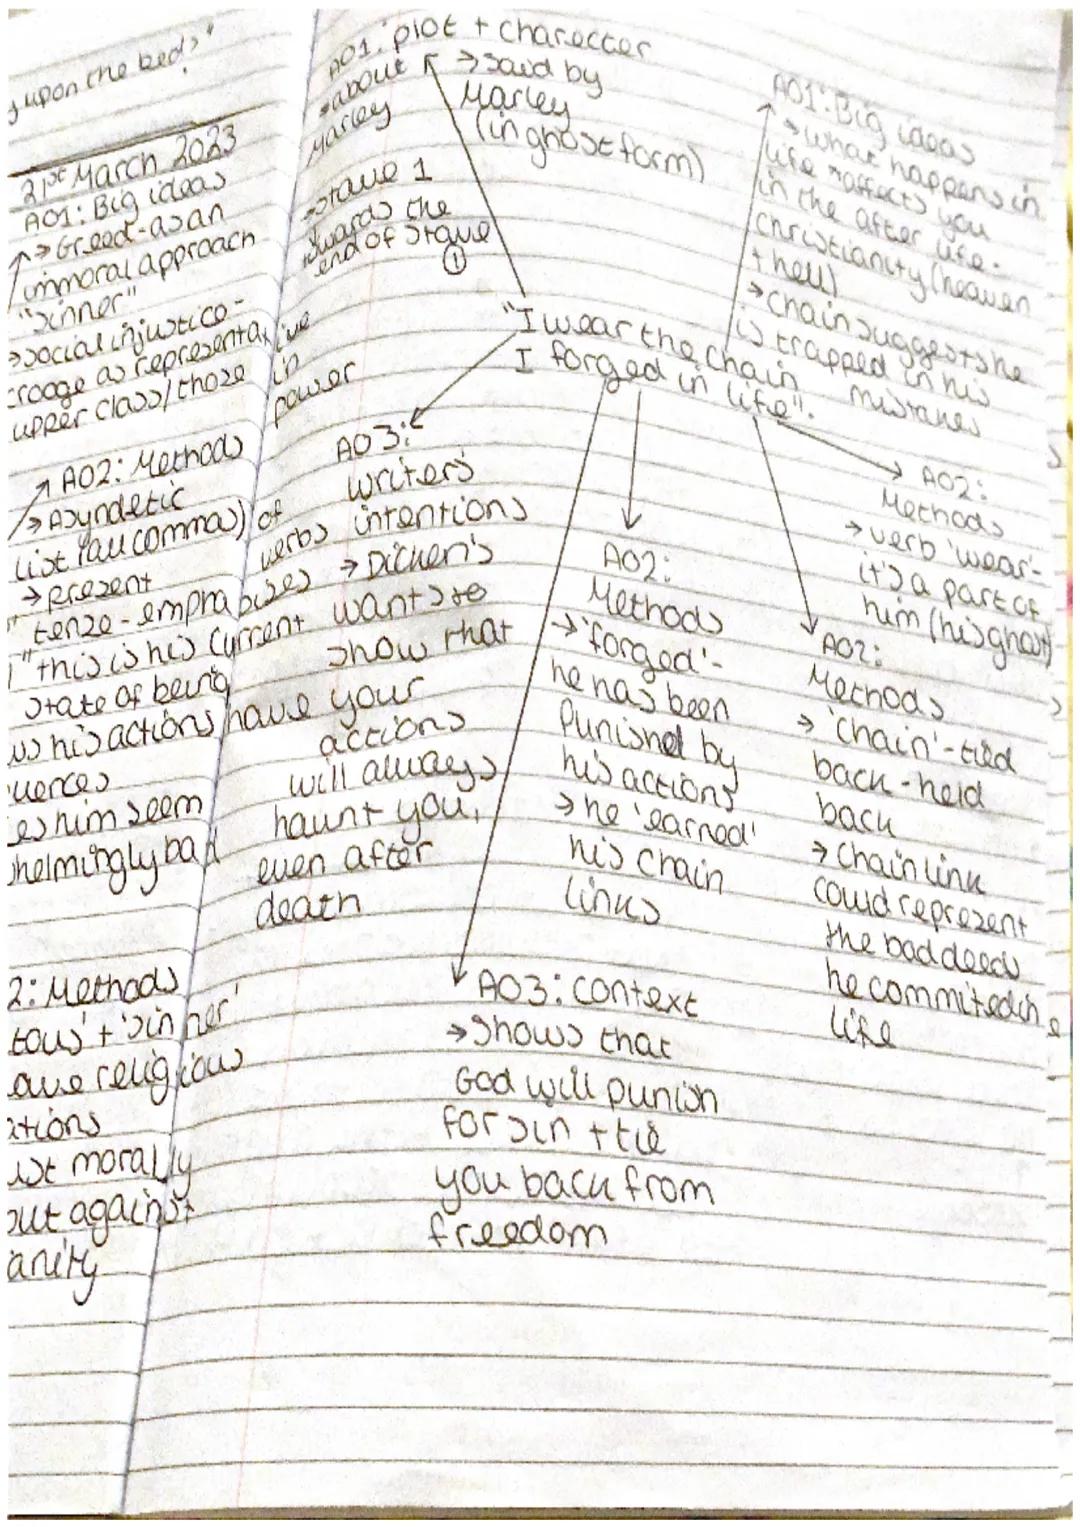 g upon the beds"
21st March 2023
AO1: Big ideas
→ Greed - as an
immoral approach
"sinner"
→ social injustice -
crooge as representative
upper class/those in
power
AO2: Methods
→ Asyndetic
list (all commas) of
verbs
→ present
tense - emphasises
"this is his current
state of being
ws his actions have
uences
es him seem
helmingly bad
2: Methods
tous' + 'sinner'
ave religious
ations
ust morally
out against
anity
AO1: plot + charecter
→ about
Marley
→ Said by
Marley
(in ghost form)
→ stave 1
towards the
end of stave
①
AO1: Big ideas
→ what happens in
life → affects you
in the after life -
christianity (heaven
+ hell)
→ chain suggests he
is trapped in his
mistakes
"I wear the chain
I forged in life".
AO3:
writers
intentions
→ Dicken's
wants to
show that
your
actions
will always
haunt you,
even after
death
AO2:
Methods
→ 'forged' -
he has been
punished by
his actions
→ he 'earned'
his chain
links
AO2:
Methods
→ verb 'wear' -
it's a part of
him (his ghost)
AO2:
Methods
→ 'chain' - tied
back - held
back
→ chain link
could represent
the bad deeds
he commited in
life
AO3: context
→ Shows that
God will punish
for sin + tie
you back from
freedom